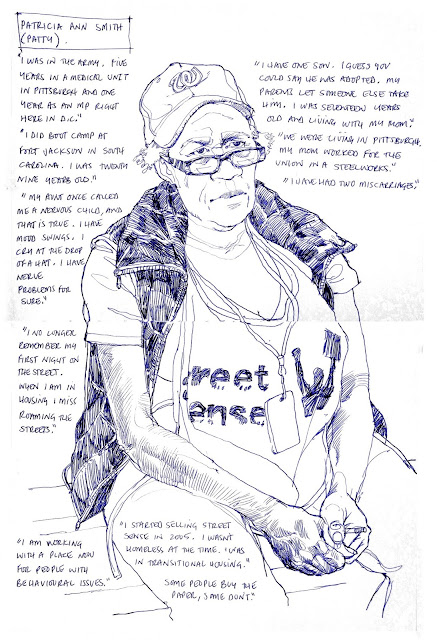 PATRICIA ANN SMITH
(PATTY).
"I WAS IN THE ARMY. FIVE
YEARS IN A MEDICAL UNIT
IN PITTSBURGH AND ONE
YEAR AS AN MP RIGHT
HERE IN D.C."
"I DID BOOT CAMP AT
FORT JACKSON IN SOUTH
CAROLINA. I WAS TWENTY
NINE YEARS OLD."
"MY AUNT ONCE CALLED
ME A NERVOUS CHILD, AND
THAT IS TRUE. I HAVE
MOOD SWINGS. I
CRY AT THE DROP
OF A HAT. I HAVE
NERVE
PROBLEMS FOR
SURE."
"I NO LONGER
REMEMBER MY
FIRST NIGHT ON
THE STREET.
WHEN I AM IN
HOUSING I MISS
ROAMING THE
STREETS."
"I AM WORKING
WITH A PLACE NOW
FOR PEOPLE WITH
BEHAVIOURAL ISSUES."
"I HAVE ONE SON. I GUESS YOU
COULD SAY HE WAS ADOPTED. MY
PARENTS LET SOMEONE ELSE TAKE
HIM. I WAS SEVENTEEN YEARS
OLD AND LIVING WITH MY MOM."
"WE WERE LIVING IN PITTSBURGH.
MY MOM WORKED FOR THE
UNION IN A STEELWORKS."
"I HAVE HAD TWO MISCARRIAGES."
W
reet
ense
"I STARTED SELLING STREET
SENSE IN 2005. I WASN'T
HOMELESS AT THE TIME. I WAS
IN TRANSITIONAL HOUSING."
SOME PEOPLE BUY THE
PAPER, SOME DON'T."